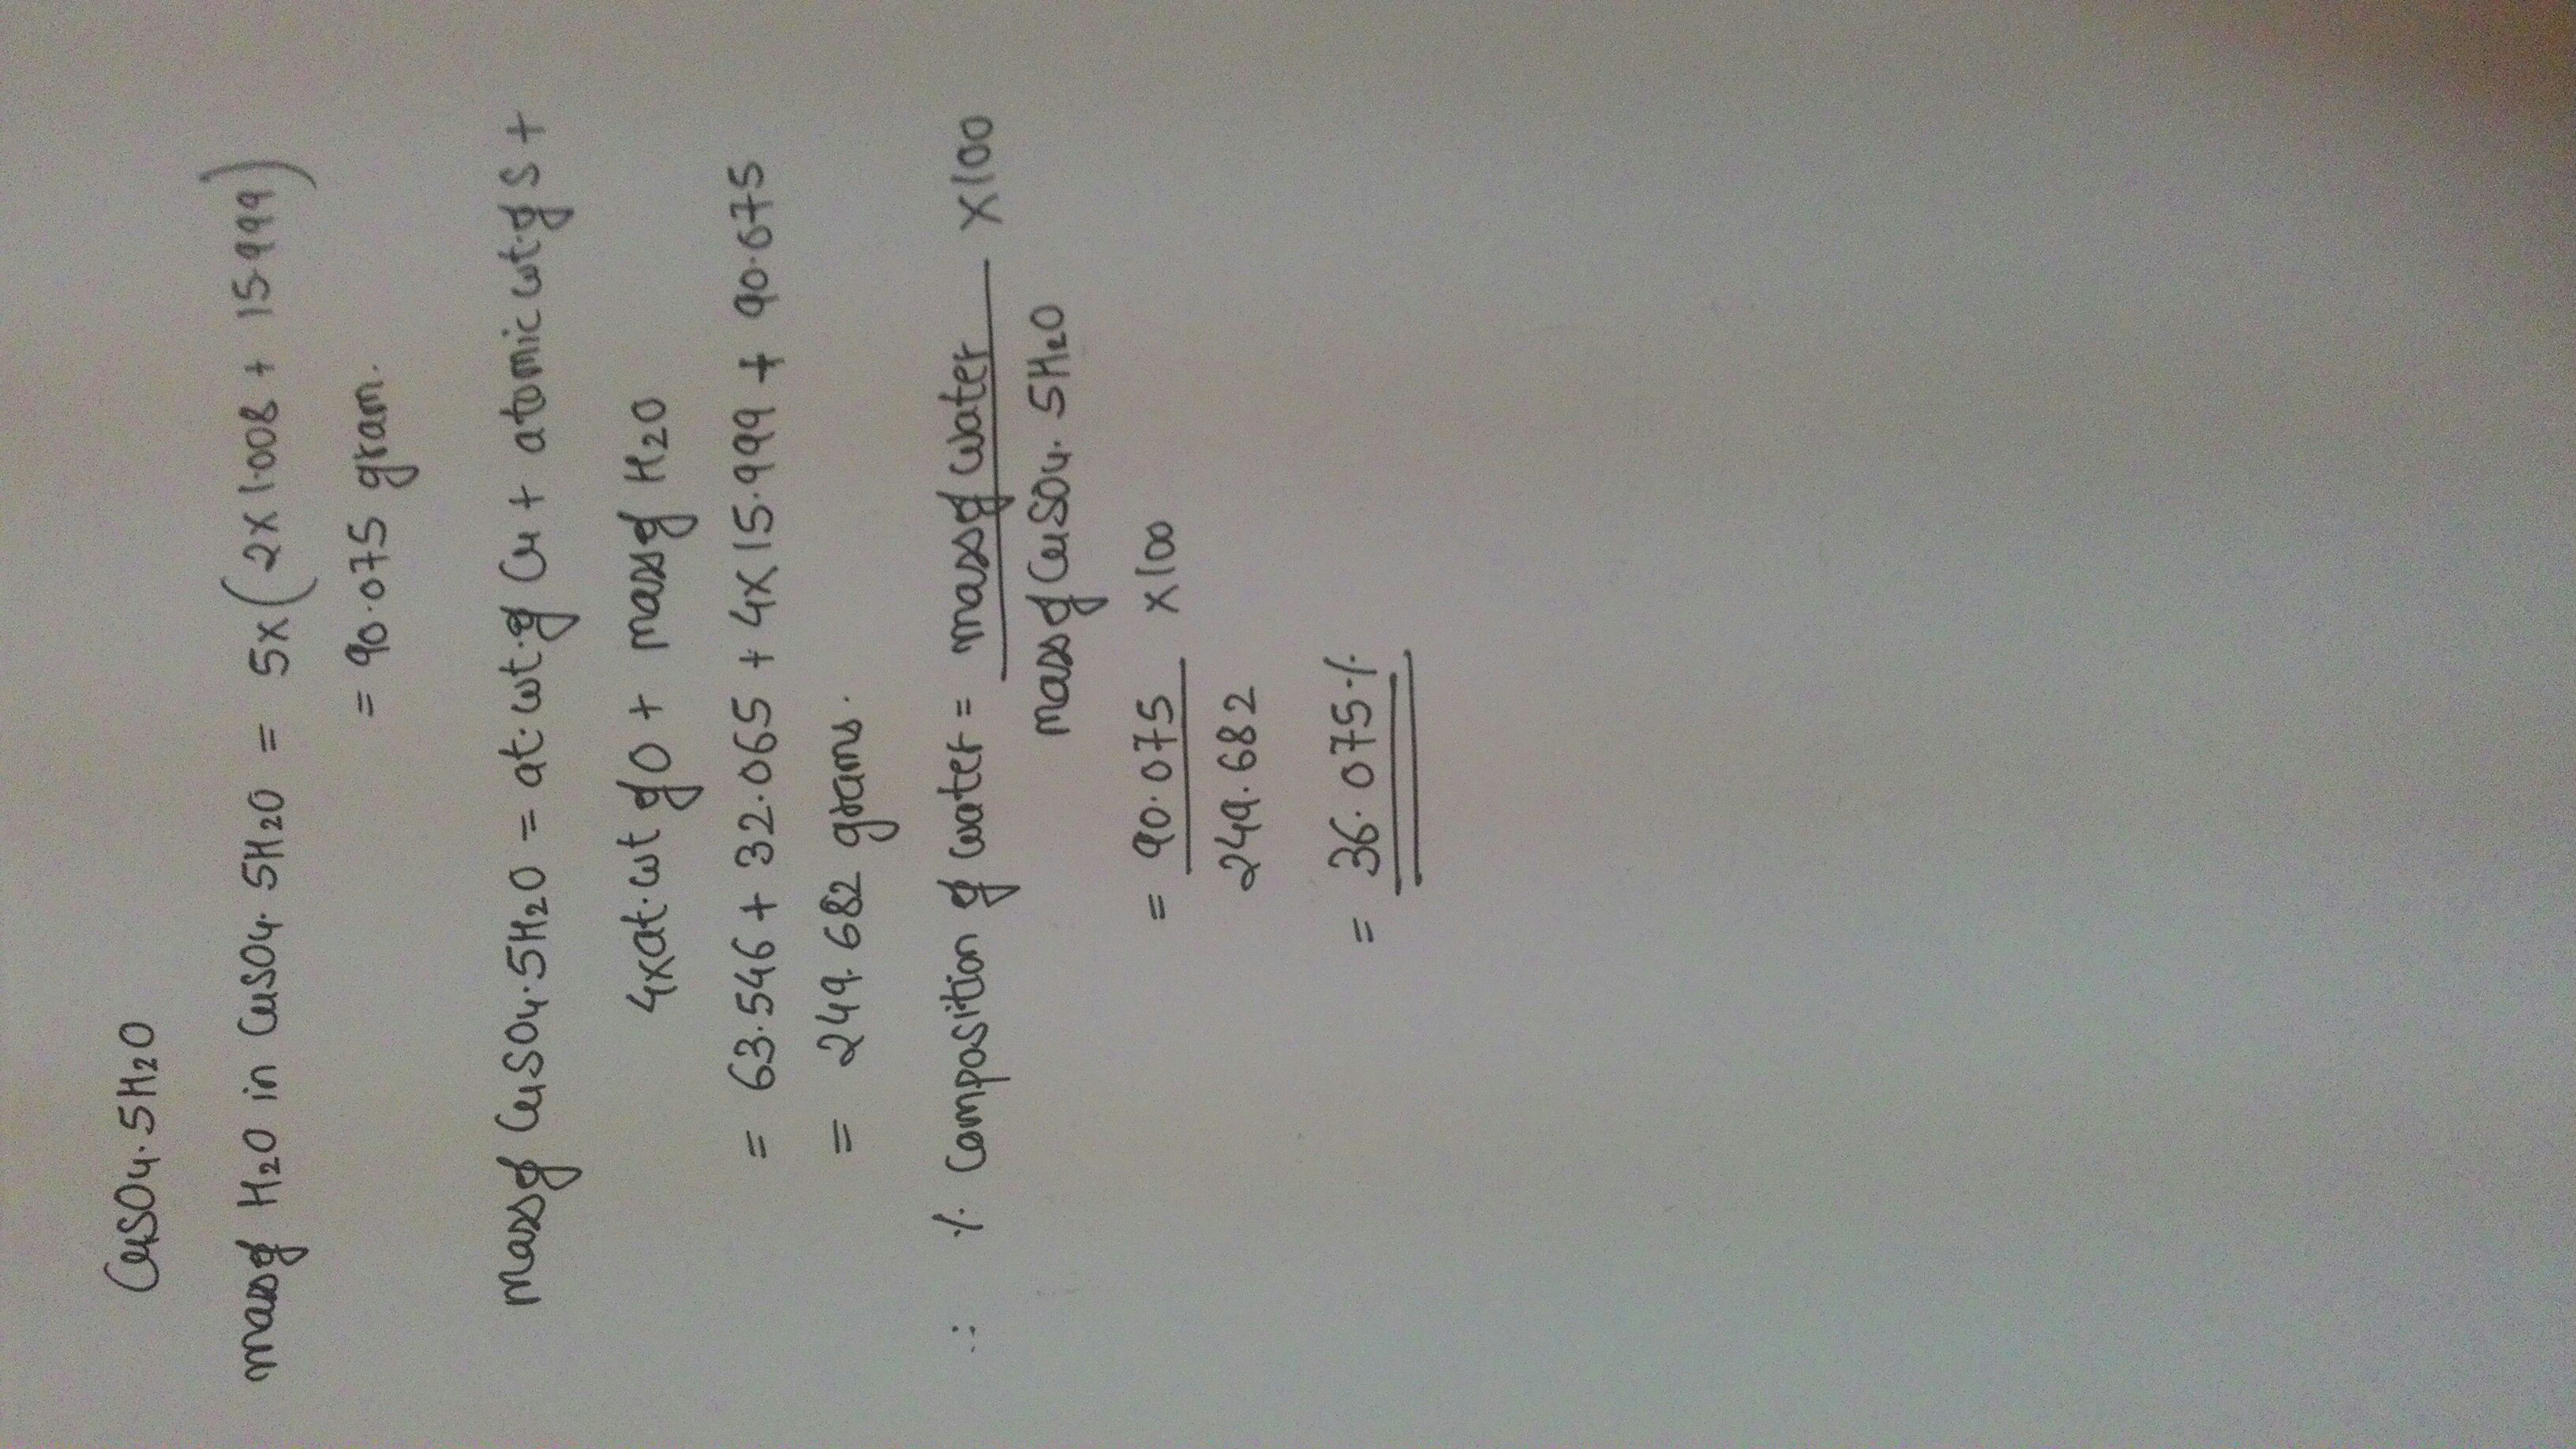 CuSO4.5H2O
mass of H2O in CuSO4.5H2O = 5x(2x1.008 + 15.999)
= 90.075 gram.
Mass of CuSO4.5H2O = at.wt.of Cu + atomic wt.of S +
4xat.wt of O + mass of H2O
= 63.546 + 32.065 + 4x15.999 + 90.075
= 249.682 grams.
∴ % Composition of water = mass of water x100
mass of CuSO4.5H2O
= 90.075 x100
249.682
= 36.075%